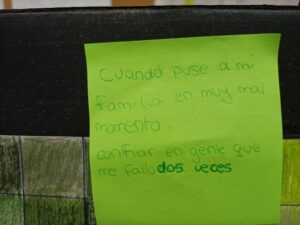 Cuando puse a mi
familia en muy mal
momento.
confiar en gente que
me fallo dos veces